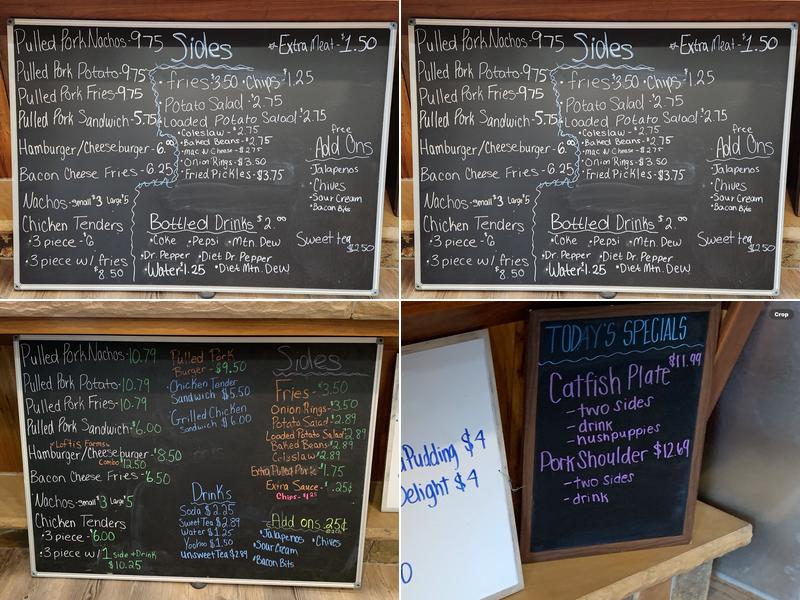 Pulled Pork Nachos-9.75
Pulled Pork Potato-9.75
Pulled Pork Fries-9.75
Pulled Pork Sandwich-5.75
Hamburger/Cheeseburger-6.00
Bacon Cheese Fries-6.25
Nachos-small $3 Large $5
Chicken Tenders
•3 piece-$6
•3 piece w/ fries
$8.50
Sides
•fries $3.50 •Chips $1.25
•Potato Salad $2.75
•Loaded Potato Salad $2.75
•Coleslaw-$2.75
•Baked Beans-$2.75
•Mac N Cheese-$2.75
•Onion Rings-$3.50
•Fried Pickles-$3.75
Bottled Drinks $2.00
•Coke •Pepsi •Mtn. Dew
•Dr. Pepper •Diet Dr. Pepper
•Water $1.25 •Diet Mtn. Dew
*Extra Meat-$1.50
free
Add Ons
•Jalapenos
•Chives
•Sour Cream
•Bacon Bits
Sweet tea
$2.50
Pulled Pork Nachos-9.75
Pulled Pork Potato-9.75
Pulled Pork Fries-9.75
Pulled Pork Sandwich-5.75
Hamburger/Cheeseburger-6.00
Bacon Cheese Fries-6.25
Nachos-small $3 Large $5
Chicken Tenders
•3 piece-$6
•3 piece w/ fries
$8.50
Sides
•fries $3.50 •Chips $1.25
•Potato Salad $2.75
•Loaded Potato Salad $2.75
•Coleslaw-$2.75
•Baked Beans-$2.75
•Mac N Cheese-$2.75
•Onion Rings-$3.50
•Fried Pickles-$3.75
Bottled Drinks $2.00
•Coke •Pepsi •Mtn. Dew
•Dr. Pepper •Diet Dr. Pepper
•Water $1.25 •Diet Mtn. Dew
*Extra Meat-$1.50
free
Add Ons
•Jalapenos
•Chives
•Sour Cream
•Bacon Bits
Sweet tea
$2.50
Pulled Pork Nachos-10.79
Pulled Pork Potato-10.79
Pulled Pork Fries-10.79
Pulled Pork Sandwich-$6.00
•Loftis Farms•
Hamburger/Cheeseburger-$8.50
Combo $12.50
Bacon Cheese Fries-$6.50
Nachos-small $3 Large $5
Chicken Tenders
•3 piece-$6.00
•3 piece w/ 1 side + Drink
$10.25
Pulled Pork
Burger-$9.50
•Chicken Tender
Sandwich $5.50
•Grilled Chicken
Sandwich $6.00
Drinks
Soda $2.25
Sweet Tea $2.89
Water $1.25
Yoohoo $1.50
unsweet Tea $2.89
Sides
Fries-$3.50
Onion Rings-$3.50
Potato Salad-$2.89
Loaded Potato Salad $2.89
Baked Beans-$2.89
Coleslaw-$2.89
Extra Pulled Pork-$1.75
Extra Sauce-.25¢
Chips-$1.25
Add ons .25¢
each
•Jalapenos •Chives
•Sour Cream
•Bacon Bits
Pudding $4
Delight $4
0
TODAY'S SPECIALS
$11.99
Catfish Plate
-two sides
-drink
-hushpuppies
Pork Shoulder $12.69
-two sides
-drink
Crop